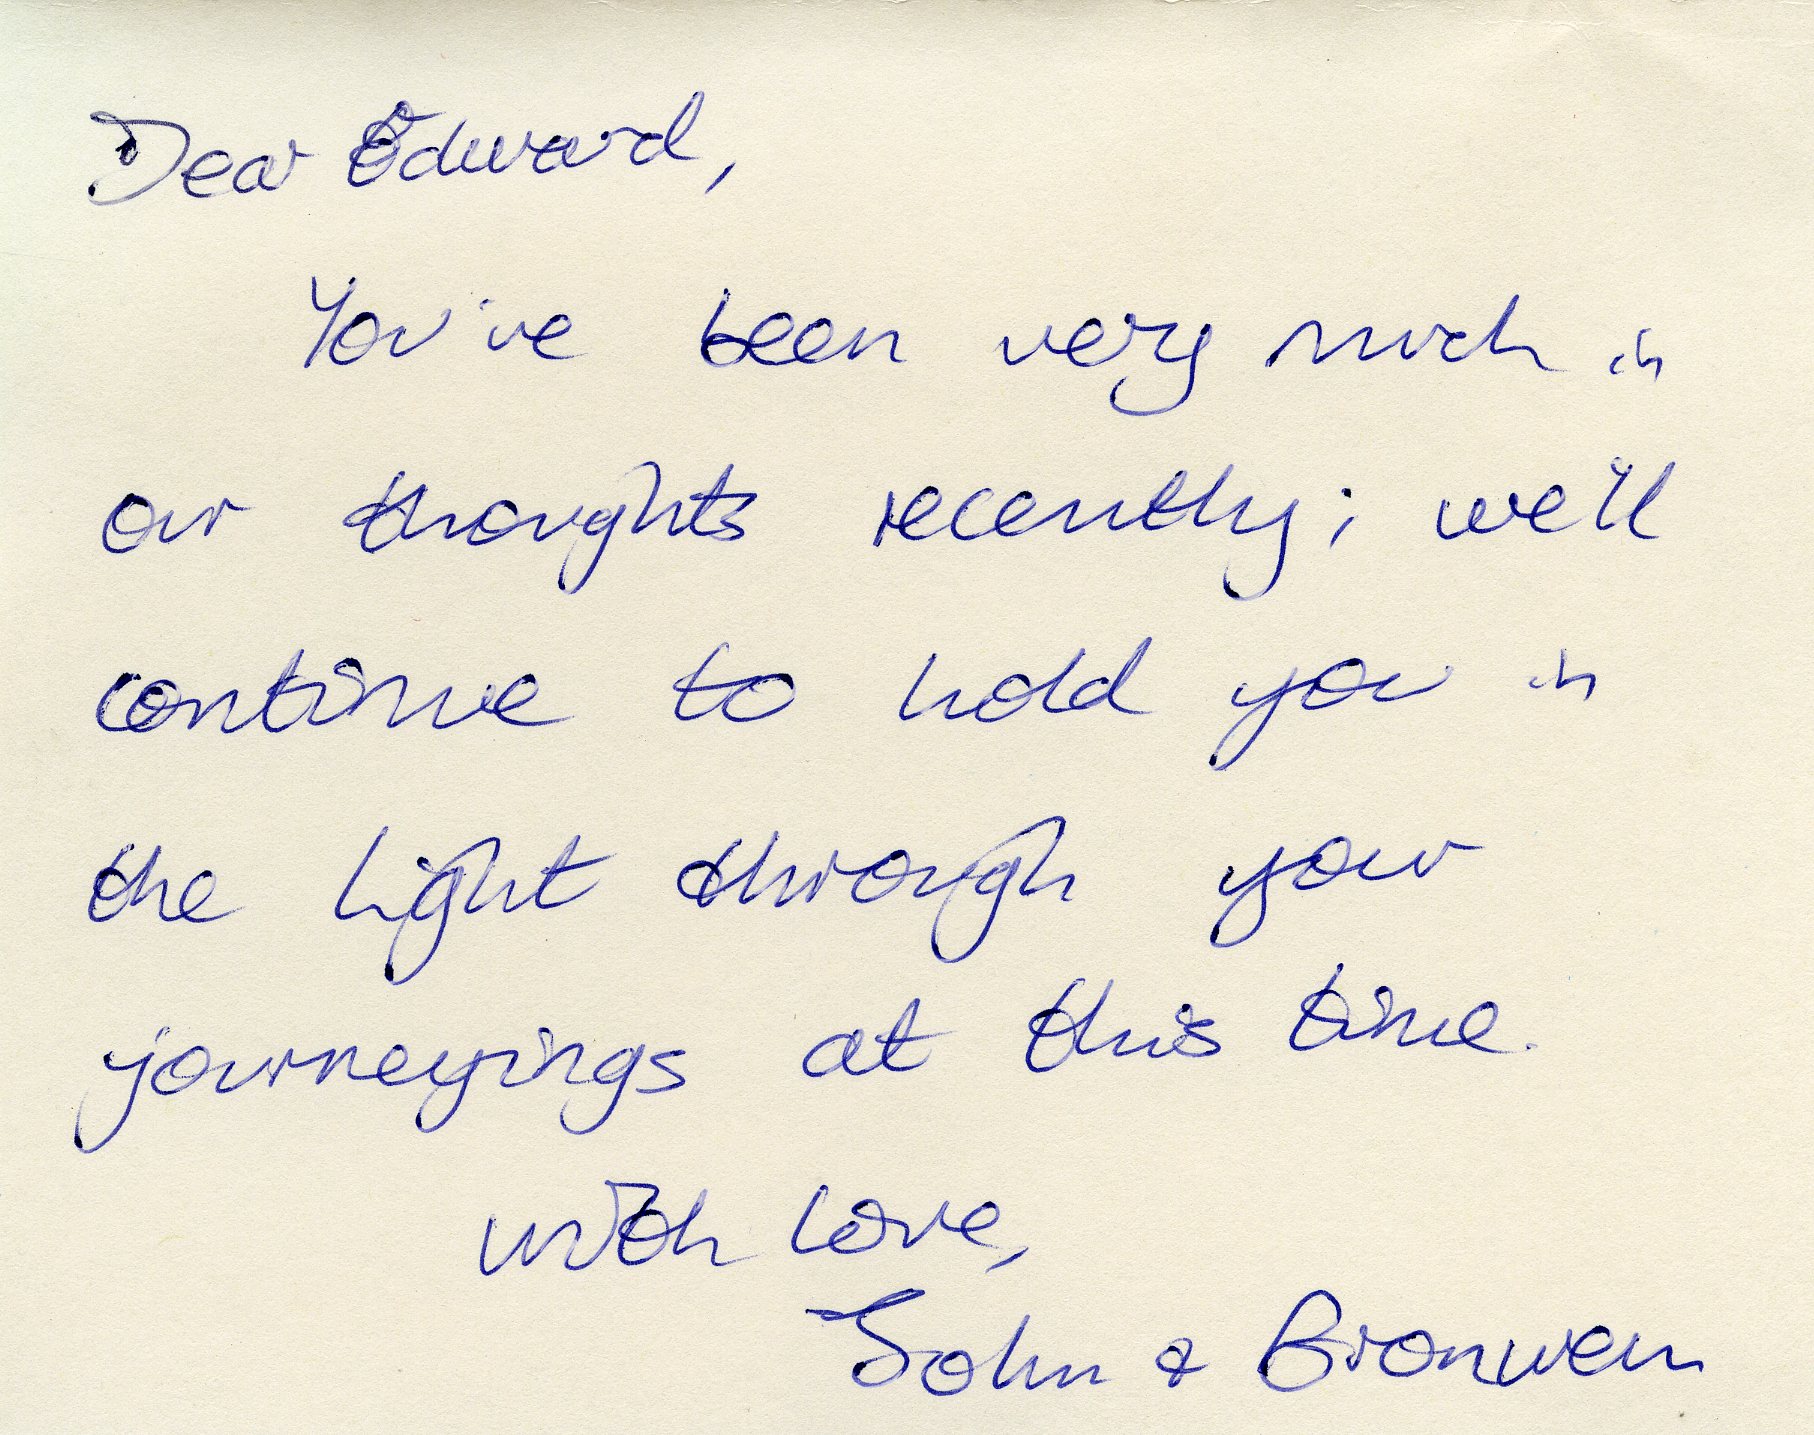 Dear Edward,
You've been very much in
our thoughts recently; we'll
continue to hold you in
the light through your
journeyings at this time.
with love,
John & Bronwen